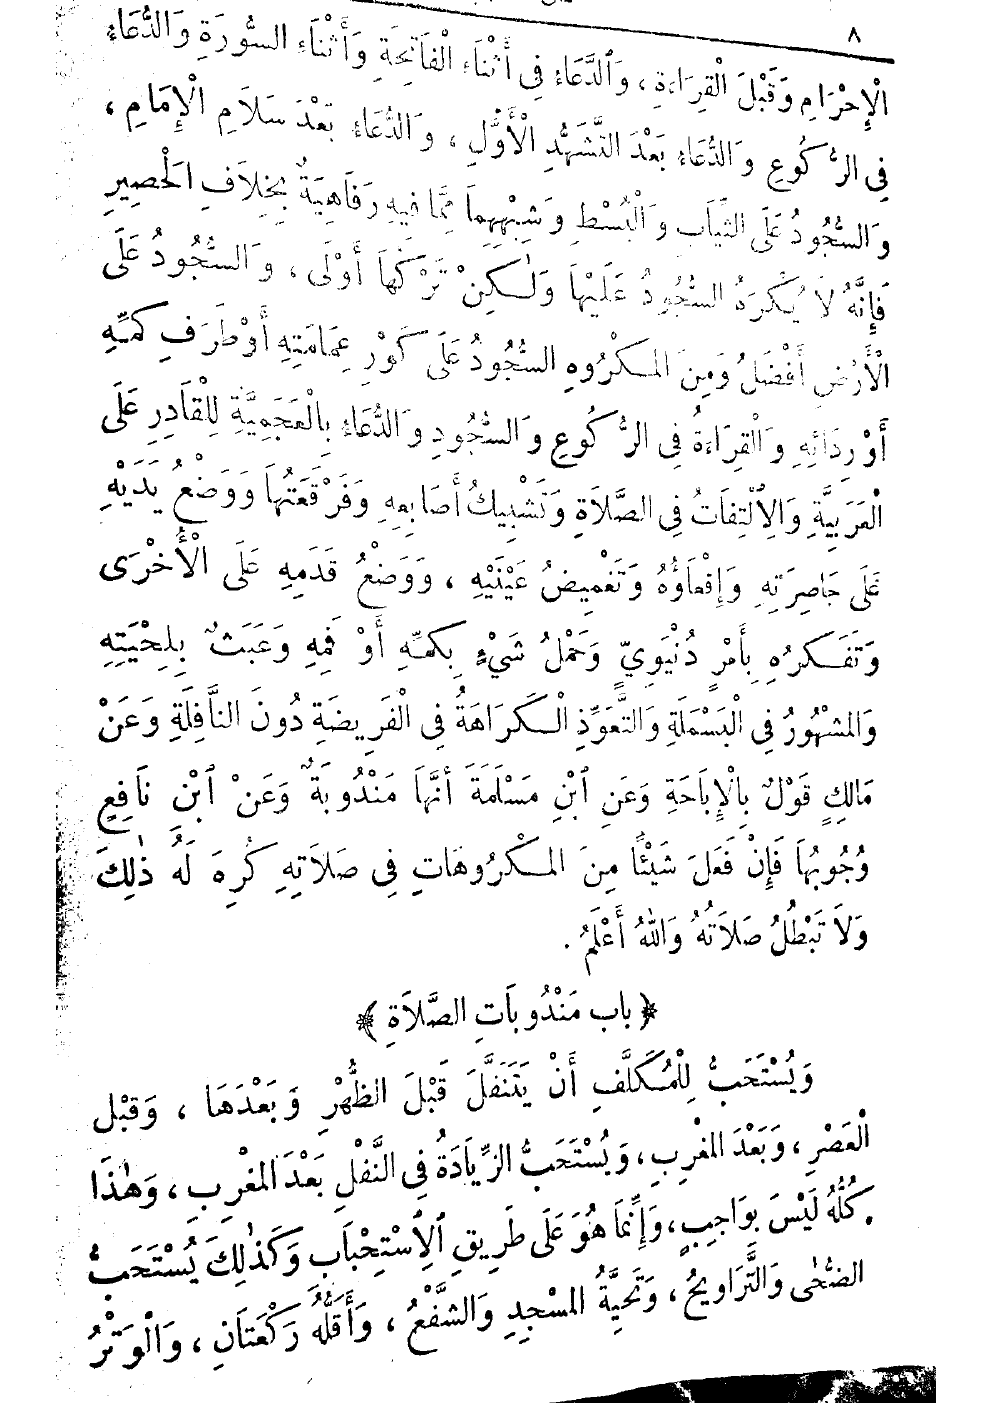 ٨
الْإِحْرَامِ وَقَبْلَ الْقِرَاءَةِ ، وَالدُّعَاءُ فِى أَثْنَاءِ الْفَاتِحَةِ وَأَثْنَاءِ السُّورَةِ وَالدُّعَاءُ
فِى الرُّكُوعِ وَالدُّعَاءُ بَعْدَ التَّشَهُّدِ الْأَوَّلِ ، وَالدُّعَاءُ بَعْدَ سَلَامِ الْإِمَامِ ،
وَالسُّجُودُ عَلَى الثِّيَابِ وَالْبُسْطِ وَشِبْهِهِمَا مِمَّا فِيهِ رَفَاهِيَةٌ بِخِلَافِ الْحَصِيرِ
فَإِنَّهُ لَا يُكْرَهُ السُّجُودُ عَلَيْهَا وَلٰكِنْ تَرْكُهَا أَوْلَى ، وَالسُّجُودُ عَلَى
الْأَرْضِ أَفْضَلُ وَمِنَ الْمَكْرُوهِ السُّجُودُ عَلَى كَوْرِ عِمَامَتِهِ أَوْ طَرَفِ كُمِّهِ
أَوْ رِدَائِهِ وَالْقِرَاءَةُ فِى الرُّكُوعِ وَالسُّجُودِ وَالدُّعَاءُ بِالْعَجَمِيَّةِ لِلْقَادِرِ عَلَى
الْعَرَبِيَّةِ وَالِالْتِفَاتُ فِى الصَّلَاةِ وَتَشْبِيكُ أَصَابِعِهِ وَفَرْقَعَتُهَا وَوَضْعُ يَدَيْهِ
عَلَى خَاصِرَتِهِ وَإِقْعَاؤُهُ وَتَغْمِيضُ عَيْنَيْهِ ، وَوَضْعُ قَدَمِهِ عَلَى الْأُخْرَى
وَتَفَكُّرُهِ بِأَمْرٍ دُنْيَوِيٍّ وَحَمْلُ شَيْءٍ بِكُمِّهِ أَوْ فَمِهِ وَعَبَثٌ بِلِحْيَتِهِ
وَالْمَشْهُورُ فِى الْبَسْمَلَةِ وَالتَّعَوُّذِ الْكَرَاهَةُ فِى الْفَرِيضَةِ دُونَ النَّافِلَةِ وَعَنْ
مَالِكٍ قَوْلٌ بِالْإِبَاحَةِ وَعَنِ ابْنِ مَسْلَمَةَ أَنَّهَا مَنْدُوبَةٌ وَعَنْ ابْنِ نَافِعٍ
وُجُوبُهَا فَإِنْ فَعَلَ شَيْئًا مِنَ الْمَكْرُوهَاتِ فِى صَلَاتِهِ كُرِهَ لَهُ ذٰلِكَ
وَلَا تَبْطُلُ صَلَاتُهُ وَاللهُ أَعْلَمُ .
﴿ باب مَنْدُوبَاتِ الصَّلَاةِ ﴾
وَيُسْتَحَبُّ لِلْمُكَلَّفِ أَنْ يَتَنَفَّلَ قَبْلَ الظُّهْرِ وَبَعْدَهَا ، وَقَبْلَ
الْعَصْرِ ، وَبَعْدَ الْمَغْرِبِ ، وَيُسْتَحَبُّ الزِّيَادَةُ فِى النَّفْلِ بَعْدَ الْمَغْرِبِ ، وَهٰذَا
كُلُّهُ لَيْسَ بِوَاجِبٍ ، وَإِنَّمَا هُوَ عَلَى طَرِيقِ الِاسْتِحْبَابِ وَكَذٰلِكَ يُسْتَحَبُّ
الضُّحٰى وَالتَّرَاوِيحُ ، وَتَحِيَّةُ الْمَسْجِدِ وَالشَّفْعُ ، وَأَقَلُّهُ رَكْعَتَانِ ، وَالْوَتْرُ